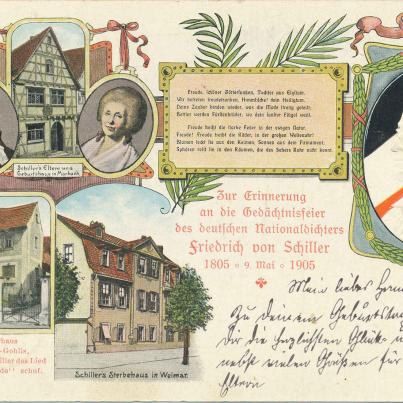 Schiller's Eltern und
Geburtshaus in Marbach.
Freude, schöner Götterfunken, Tochter aus Elysium,
Wir betreten feuertrunken, Himmlische! dein Heiligtum.
Deine Zauber binden wieder, was die Mode streng geteilt;
Bettler werden Fürstenbrüder, wo dein sanfter Flügel weilt.
Freude heißt die starke Feder in der ewigen Natur.
Freude! Freude treibt die Räder, in der großen Weltenuhr!
Blumen lockt sie aus den Keimen, Sonnen aus dem Firmament,
Sphären rollt sie in den Räumen, die des Sehers Rohr nicht kennt.
Zur Erinnerung
an die Gedächtnisfeier
des deutschen Nationaldichters
Friedrich von Schiller
1805 ∘ 9. Mai ∘ 1905
haus
-Gohlis,
iller das Lied
de" schuf.
Schiller's Sterbehaus in Weimar.
Mein lieber
Zu deinem Geburtstag
Dir die herzlichsten Glück-
nebst vielen Grüßen für
Eltern